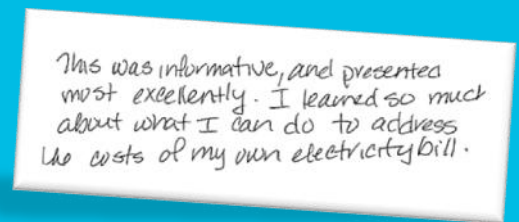 This was informative, and presented
most excellently. I learned so much
about what I can do to address
the costs of my own electricity bill.